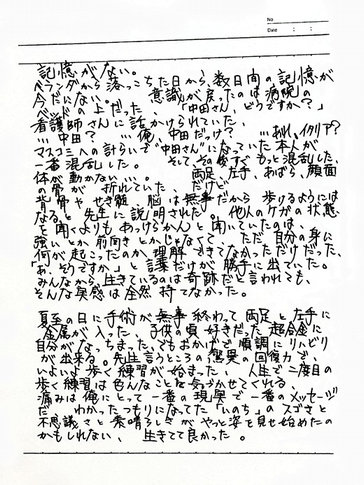 No.
Date
記憶がない。
ベランダから落っこちた日から、数日間の記憶が
今だにない。意識が戻ったのは病院の
ベッドの上だった。「中田さん、どうですか？」
看護師さんに話かけられていた、
…中田？…俺、中田だっけ？…あれ、イクリア？
マスコミへの計らいで"中田さん"になっていた本人が
一番混乱した。そして、その後すぐもっと混乱した、
体が動かない…。両足、左手、あばら、顔面
の骨が折れていた、だけど
背骨やせき髄、脳は無事だから歩けるようには
なると先生に説明された。他人のケガの状態
を聞くよりもあっけらかんと聞いていたのは、
強いとか前向きとかじゃなくて、ただ自分の身に
何が起こったのか理解できてなかっただけだった、
あ、そうですか」と言葉だけが勝手に出ていた。
みんなから、生きているのは奇跡だと言われても、
そんな実感は全然持てなかった。
夏至の日に手術が無事終わって両足と左手に
金属が入った、子供の頃好きだった超合金に
自分がなっちまった、でもおかげで順調にリハビリ
が出来る。先生言うところの驚異の回復力で、
いよいよ歩く練習が始まった、人生で二度目の
歩く練習は色んなことを気づかせてくれる、
痛みは俺にとって一番の現実で一番のメッセージ
だ、わかったつもりになってた「いのち」のスゴさと
不思議さと素晴らしさがやっと姿を見せ始めたの
かもしれない、生きてて良かった。